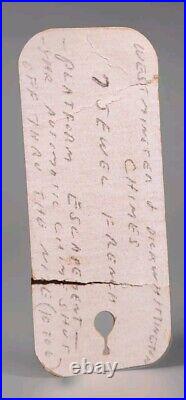 WESTMINSTER & WHITTINGTON
CHIMES
7 JEWEL FRENCH
PLATFORM ESCAPEMENT
AUTOMATIC CHIME SHUT
OFF THRU THE NITE